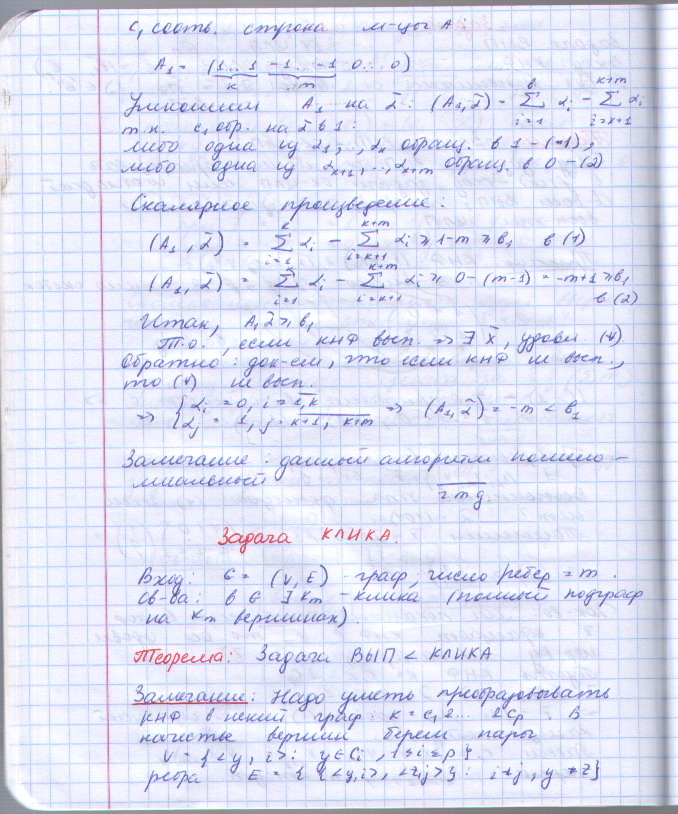 C₁ соотв. строка м-цы A:
A₁ = (1...1 -1...-1 0...0)
k m
Умножим A₁ на α̅: (A₁, α̅) = ∑ αᵢ - ∑ αᵢ
т.к. c₁ обр. на α̅ в 1:
либо одна из α₁,..., αₖ обращ. в 1 - (1),
либо одна из αₖ₊₁,..., αₖ₊ₘ обращ. в 0 - (2)
Скалярное произведение:
(A₁, α̅) = ∑ αᵢ - ∑ αᵢ ≥ 1-m ≥ b₁ в (1)
(A₁, α̅) = ∑ αᵢ - ∑ αᵢ ≥ 0-(m-1) = -m+1 ≥ b₁
в (2)
Итак, A₁α̅ ≥ b₁
Т.о., если КНФ вып. => ∃ x̅, удовл. (*)
Обратно: док-ем, что если КНФ не вып.,
то (*) не вып.
=> { αᵢ = 0, i = 1,k
αⱼ = 1, j = k+1, k+m => (A₁, α̅) = -m < b₁
Замечание: данный алгоритм полино-
миальный
чтд
Задача КЛИКА.
Вход: G = (V, E) - граф, число ребер = m.
Св-ва: в G ∃ Kₘ - клика (полный подграф
на Kₘ вершинах).
Теорема: Задача ВЫП < КЛИКА
Замечание: Надо уметь преобразовывать
КНФ в некий граф: K = C₁ & ... & Cₚ. В
качестве вершин берем пары
V = {<y, i>: y ∈ Cᵢ, 1 ≤ i ≤ p}
ребра E = { {<y,i>, <z,j>}: i ≠ j, y ≠ z̅}